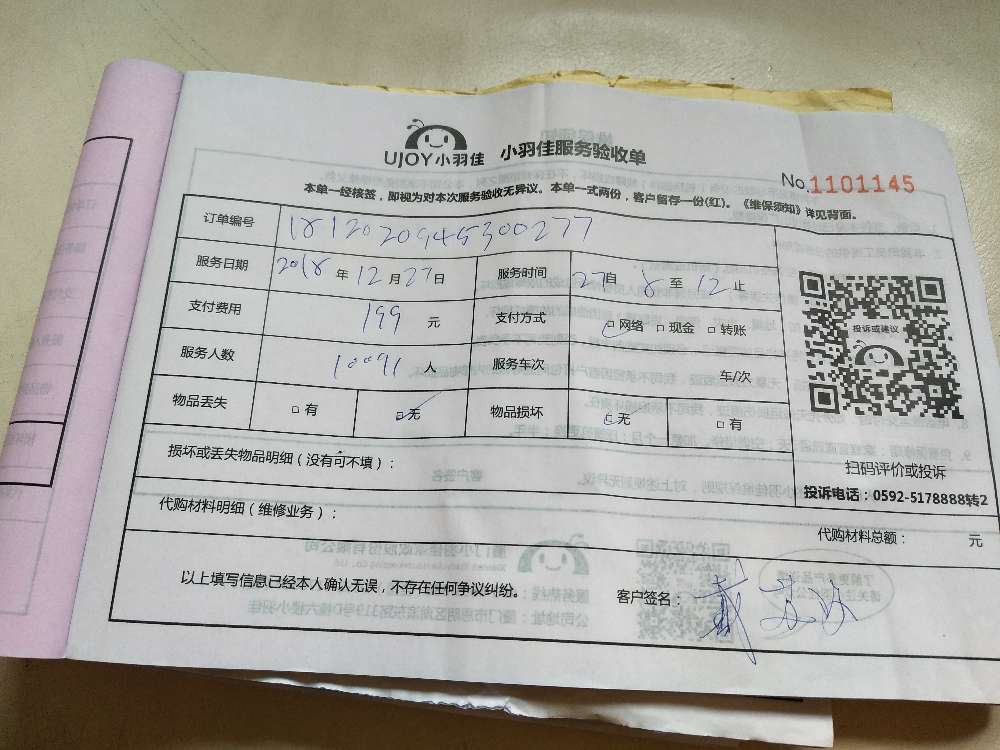 UJOY小羽佳 小羽佳服务验收单
No.1101145
本单一经核签，即视为对本次服务验收无异议。本单一式两份，客户留存一份(红)。《维保须知》详见背面。
订单编号 1812020945300277
服务日期 2018年12月27日 服务时间 27自 8 至 12 止
支付费用 199 元 支付方式 □网络 □现金 □转账
服务人数 10091 人 服务车次 车/次
物品丢失 □有 □无 物品损坏 □无 □有
投诉或建议
扫码评价或投诉
投诉电话：0592-5178888转2
损坏或丢失物品明细（没有可不填）：
代购材料明细（维修业务）：
代购材料总额： 元
以上填写信息已经本人确认无误，不存在任何争议纠纷。 客户签名： 戴